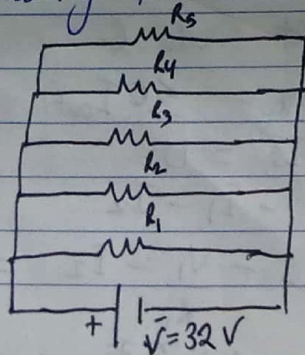 R5
R4
R3
R2
R1
+ - V=32 V